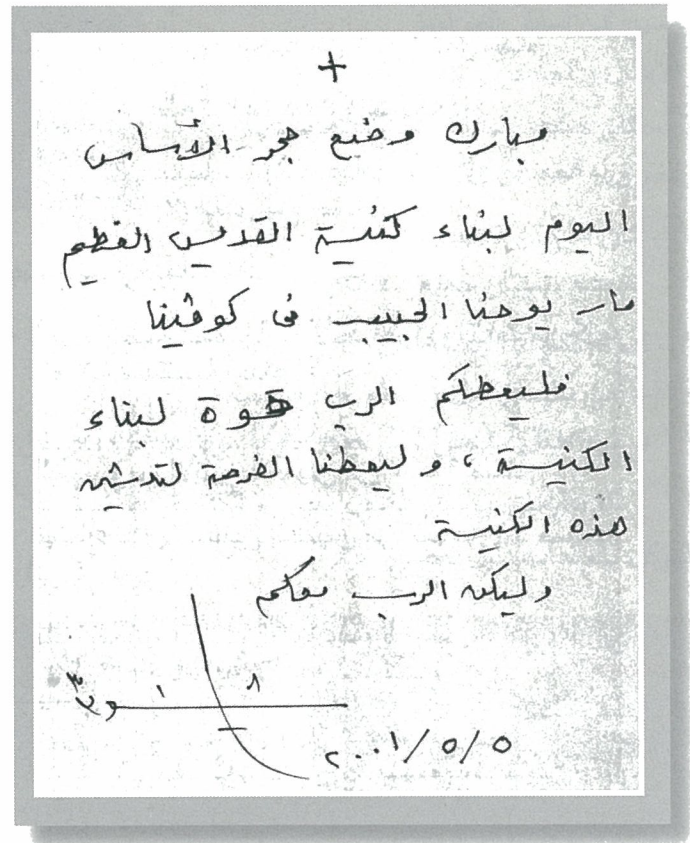 +
مبارك وضع حجر الأساس
اليوم لبناء كنيسة القديس العظيم
مار يوحنا الحبيب فى كوڤينا
فليعطكم الرب قوة لبناء
الكنيسة ، وليعطنا الفرصة لتدشين
هذه الكنيسة
وليكن الرب معكم
٢٠٠١/٥/٥